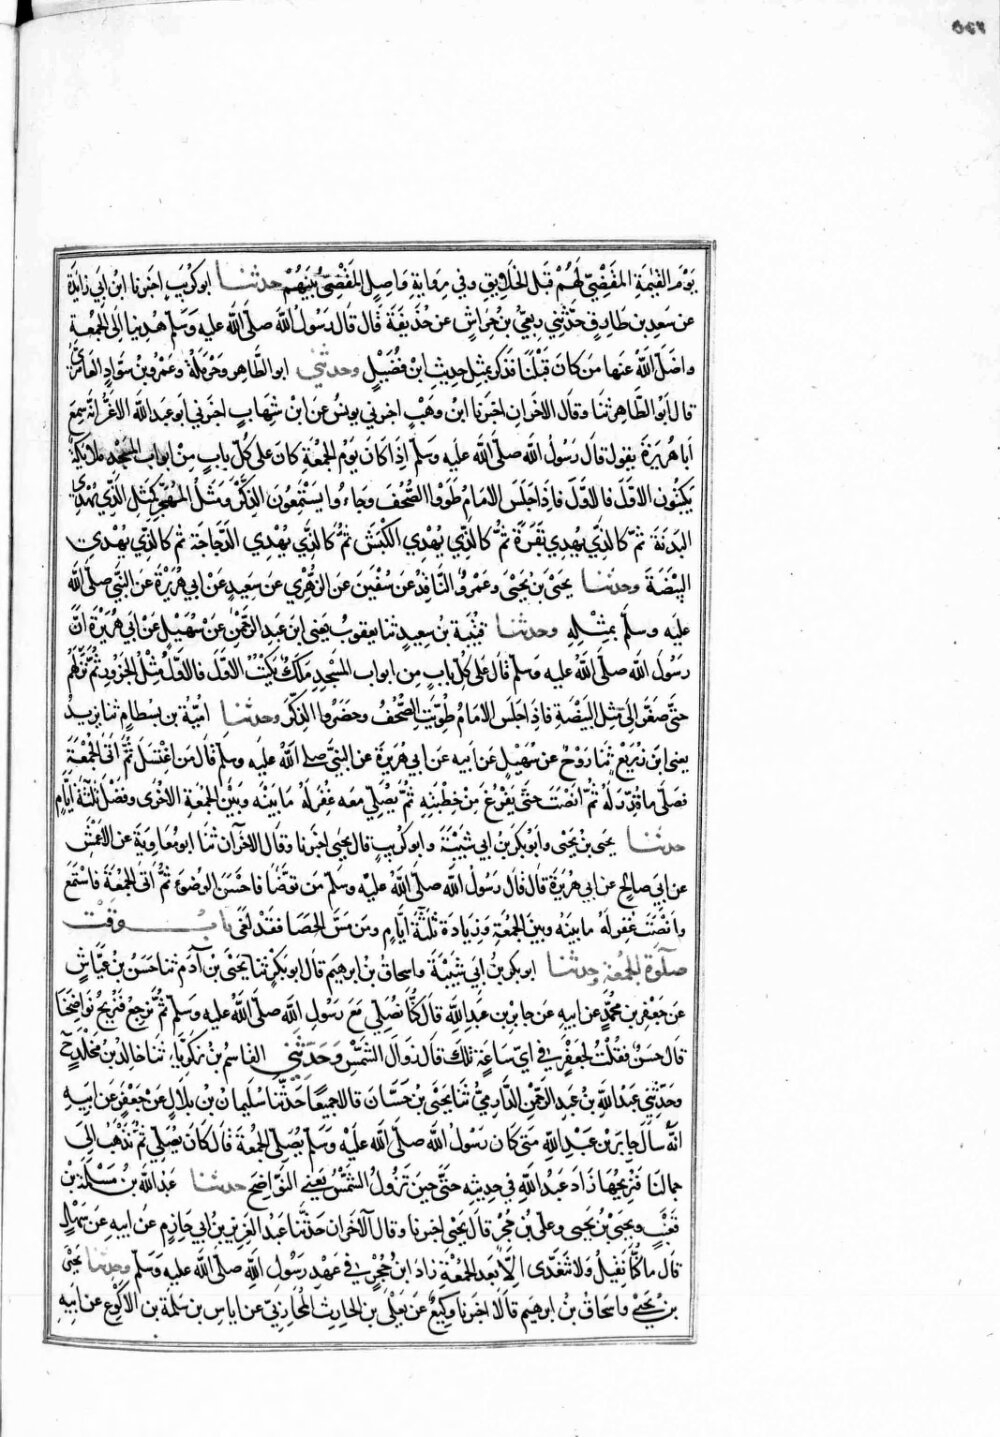 يَوْمَ القِيٰمَةِ المَقْضِيّ لَهُمْ قَبْلَ الخَلَايِقِ وفي رِوايَةِ وَاصِلٍ المَقْضِيّ بَيْنَهُمْ حدثنا ابو كُرَيبٍ اخبرنا ابْنُ ابي زايِدَةَ
عن سَعدِ بن طارِقٍ حدّثني رِبعِيُّ بن حِراشٍ عن حُذَيفَةَ قالَ قال رَسُولُ اللهِ صلّى اللهُ عليه وَسَلّمَ هُدِينا اِلى الجُمُعَةِ
واضَلَّ اللهُ عنها مَن كانَ قَبْلَنَا فذكر بمِثلِ حديثِ ابن فُضَيْلٍ وحدثني ابو الطّاهِرِ وحَرْمَلَةُ وعَمْرُو بنُ سَوّادٍ العامِرِيّ
قال ابُو الطّاهِر ثنا وقال الاخَرانِ اخبَرنا ابن وَهْبٍ اخبرني يونس عن ابن شِهابٍ اخبرني ابو عبد الله الاغَرّ انّه سَمِعَ
أبا هُرَيرَةَ يقول قال رَسُول الله صلّى اللهُ عليه وسلّم اِذَا كانَ يَوْمُ الجُمُعَةِ كانَ على كُلِّ بابٍ مِنْ ابوابِ المَسْجِدِ ملائِكَةٌ
يَكتُبُونَ الاوّلَ فالاوّلَ فاِذا جلَسَ الامَامُ طَوَوُا الصُّحُفَ وجَاءُوا يَسْتَمِعُونَ الذِّكْرَ ومَثَلُ المُهَجِّرِ كَمَثَلِ الّذِي يُهْدِي
البَدَنَةَ ثُمّ كالّذِي يُهدِي بَقَرَةً ثُمّ كالّذِي يُهْدِي الكَبْشَ ثُمّ كالّذِي يُهْدِي الدَّجَاجَةَ ثم كالّذي يُهْدِي
البَيْضَةَ وحدثنا يحيَى بن يَحْيَى وعَمْرٌو النَّاقِدُ عن سُفْيَن عن الزُّهْرِي عن سَعِيدٍ عن ابي هُرَيْرَةَ عن النّبي صلى الله
عليه وسلّم بمِثْلِهِ وحدثنا قُتَيْبَة بن سعِيدٍ ثنا يعقوبُ يعني ابن عبدِ الرّحمن عن سُهَيْل عَنْ ابيه عَنْ ابي هُرَيْرَةَ انّ
رسُولَ الله صلّى اللهُ عليه وَسَلّم قال على كُلِّ بابٍ مِن ابوابِ المَسْجِدِ مَلَكٌ يَكْتُبُ الاوّلَ فالاوّلَ مثّلَ الجَزُورَ ثُمّ نَزَّلَهُم
حتَّى صَغَّرَ اِلى مثلِ البَيضَةِ فاِذا جلَسَ الامَامُ طُوِيَتِ الصُّحُفُ وحَضَرُوا الذِّكْرَ وحدثنا اميّة بن بِسْطامٍ ثنا يزيدُ
يعني ابن زُرَيْعٍ ثنا رَوْحٌ عن سُهَيْلٍ عن ابيه عن ابي هُرَيرَةَ عن النبيّ صلى اللهُ عليه وسلّم قال مَن اِغْتَسَلَ ثُمَّ اتَى الجُمُعَةَ
فصَلّى ما قُدِّرَ لَهُ ثُمّ انْصَتَ حتَّى يَفْرُغَ مِنْ خطبتِه ثُمّ يُصَلّي معه غُفِرَ لَهُ ما بَيْنَه وَبَيْنَ الجمُعَةِ الاُخْرَى وفَضْلُ ثلثَةِ ايّامٍ
حدثنا يحيَى بن يحيَى وابُو بكرِ بن ابي شَيْبَةَ وابو كُرَيبٍ قال يحيى اخبرنا وقال الاخَرَان ثنا ابو مُعاويَةَ عن الاعْمَشِ
عن ابي صالِحٍ عن ابي هُرَيْرَةَ قال قال رسُولُ الله صلّى اللهُ عليه وسلّم مَن توَضَّا فاَحْسَنَ الوضُوءَ ثُمّ اتَى الجمُعَةَ فاسْتَمَعَ
وانصَتَ غُفِرَ لَهُ ما بينَهُ وبينَ الجمُعَةِ وزِيادَة ثلثَة ايّامٍ ومَن مَسَّ الحَصَا فقَدْ لَغَى باب وقت
صلٰوة الجمعة حدثنا ابو بكرِ بنُ ابي شَيْبَةَ واسحاقُ بن ابرهِيم قال ابو بكْرٍ ثنا يَحْيَى بن آدَم ثنا حَسَنُ بن عيّاشٍ
عن جعْفَرِ بن محمّدٍ عن ابيه عن جابرِ بن عبدِ اللهِ قال كُنّا نُصَلِّي مَعَ رَسُولِ الله صلّى اللهُ عليه وسلّم ثُمّ نَرجعُ فنُرِيحُ نَواضِحَنا
قال حسَنٌ فقُلتُ لِجعْفَرٍ في ايّ سَاعَةٍ تلكَ قال زوَال الشّمْسِ وَحَدّثَني القاسِم بن زكَرِيّاءَ ثنا خالدُ بن مَخْلَدٍ ح
وحدّثَني عَبْدُ اللهِ بنُ عبدِ الرّحمن الدّارِمِيُّ ثنا يحيى بن حسّان قالا جميعًا حَدّثنا سُلَيمانُ بن بلالٍ عَنْ جعْفَرٍ عن ابيه
انّه سَالَ جابِرَ بن عَبْدِ اللهِ متى كانَ رسُولُ الله صلّى الله عليْه وسَلّم يُصَلّي الجُمُعَةَ قال كانَ يُصَلّي ثُمّ نَذْهَبُ الَى
جمالنا فنُريحُهَا زادَ عبدُ اللهِ في حديثِه حتَّى حِينَ تزُولُ الشّمْسُ يَعني النّوَاضِحَ حدثنا عبدُ اللهِ بنُ مَسْلَمَة بن
قَعْنَبٍ ويحيَى بنُ يحيى وعليّ بن حُجْرٍ قال يَحيَى اخبرنا وقال الآخَران حدّثنا عبدُ العَزِيزِ بنُ ابي حازِمٍ عن ابيه عَن سَهْلٍ
قال ما كُنّا نَقِيلُ ولا نتَغدّى اِلّا بعد الجمُعَةِ زادَ ابنُ حُجْرٍ في عهدِ رَسُول اللهِ صلّى اللهُ عليه وَسَلّم وحدثنا يَحْيَى
بن يحيى واسحاقُ بن ابرهِيم قالا اخبَرنا وكيعٌ عن يَعْلَى بن الحارِثِ المُحاربيّ عن اياسِ بن سَلَمَة بن الاكْوَع عن ابيه